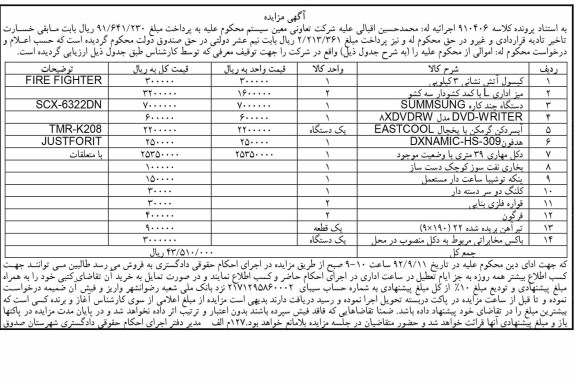 آگهی مزایده
به استناد پرونده کلاسه ۹۱۰۴۰۶ اجرائیه له: محمدحسین اقبالی علیه شرکت تعاونی معین سیستم محکوم علیه به پرداخت مبلغ ۹۱/۶۴۱/۲۳۰ ریال بابت مابقی خسارت
تاخیر تادیه قراردادی و غیره در حق محکوم له و نیز پرداخت مبلغ ۲/۲۱۳/۳۶۱ ریال بابت نیم عشر دولتی در حق صندوق دولت محکوم گردیده است که حسب اعلام و
درخواست محکوم له: اموالی از محکوم علیه را (به شرح جدول ذیل) واقع در شرکت را جهت توقیف معرفی که توسط کارشناس طبق جدول ذیل ارزیابی گردیده است.
ردیف شرح کالا واحد کالا قیمت واحد به ریال قیمت کل به ریال توضیحات
۱ کپسول آتش نشانی ۳ کیلویی ۱ ۳۰۰۰۰۰ ۳۰۰۰۰۰ FIRE FIGHTER
۲ میز اداری L با کمد کشودار سه کشو ۲ ۱۶۰۰۰۰۰ ۳۲۰۰۰۰۰
۳ دستگاه چند کاره SUMMSUNG ۱ ۷۰۰۰۰۰۰ ۷۰۰۰۰۰۰ SCX-6322DN
۴ DVD-WRITER مدل ۸XDVDRW ۱ ۶۰۰۰۰۰ ۶۰۰۰۰۰
۵ آبسردکن گرمکن با یخچال EASTCOOL یک دستگاه ۲۲۰۰۰۰۰ ۲۲۰۰۰۰۰ TMR-K208
۶ هدفون DXNAMIC-HS-309 ۱ ۲۵۰۰۰۰ ۲۵۰۰۰۰ JUSTFORIT
۷ دکل مهاری ۳۹ متری با وضعیت موجود ۱ ۲۵۳۵۰۰۰۰ ۲۵۳۵۰۰۰۰ با متعلقات
۸ بخاری نفت سوز کوچک دست ساز ۱ ۱۰۰۰۰۰
۹ پنکه توشیبا ساعت دار مستعمل ۱ ۱۵۰۰۰۰
۱۰ کلنگ دو سر دسته دار ۱ ۳۰۰۰۰
۱۱ قواره فلزی بنایی ۲ ۳۰۰۰۰
۱۲ فرگون ۲ ۴۰۰۰۰۰
۱۳ تیرآهن بریده شده ۲۲ (۱۹۰×۹) یک قطعه ۹۰۰۰۰۰
۱۴ باکس مخابراتی مربوط به دکل منصوب در محل یک دستگاه ۳۰۰۰۰۰۰
جمع کل ۴۳/۵۱۰/۰۰۰ ریال
که جهت ادای دین محکوم علیه در تاریخ ۹۲/۹/۱۱ ساعت ۱۰-۹ صبح از طریق مزایده در اجرای احکام حقوقی دادگستری به فروش می رسد طالبین می توانند جهت
کسب اطلاع بیشتر همه روزه به جز ایام تعطیل در ساعت اداری در اجرای احکام حاضر و کسب اطلاع نمایند و در صورت تمایل به خرید آن تقاضای کتبی خود را به همراه
مبلغ پیشنهادی و تودیع مبلغ ۱۰٪ از کل مبلغ پیشنهادی به شماره حساب سیبای ۲۱۷۱۲۹۵۸۶۰۰۰۲ نزد بانک ملی شعبه رضوانشهر واریز و فیش آن ضمیمه درخواست
نموده و تا قبل از ساعت مزایده در پاکت دربسته تحویل اجرا نموده و رسید دریافت دارند بدیهی است مزایده از مبلغ اعلامی از سوی کارشناس آغاز و برنده کسی است که
بیشترین مبلغ را در تقاضای خود پیشنهاد داده باشد. ضمنا تقاضاهایی که فاقد فیش سپرده باشند بدون اعتبار و ترتیب اثر داده نخواهد شد و در پایان مدت مزایده در پاکتها
باز و مبلغ پیشنهادی آنها قرائت خواهد شد و حضور متقاضیان در جلسه مزایده بلامانع خواهد بود.۱۲۷م الف مدیر دفتر اجرای احکام حقوقی دادگستری شهرستان صدوق